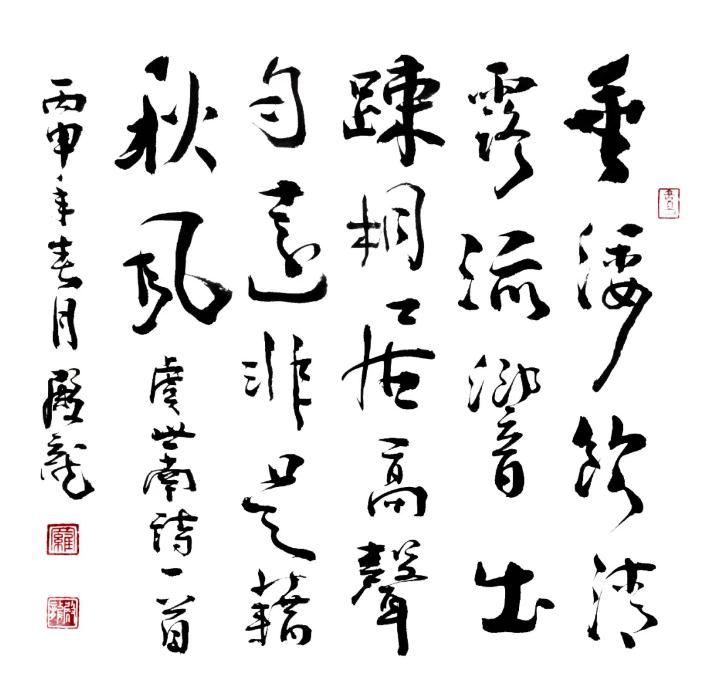 垂緌飲清
露流響出
踈桐居高聲
自遠非是藉
秋風 虞世南詩一首
丙申年春月 殿龍
羅